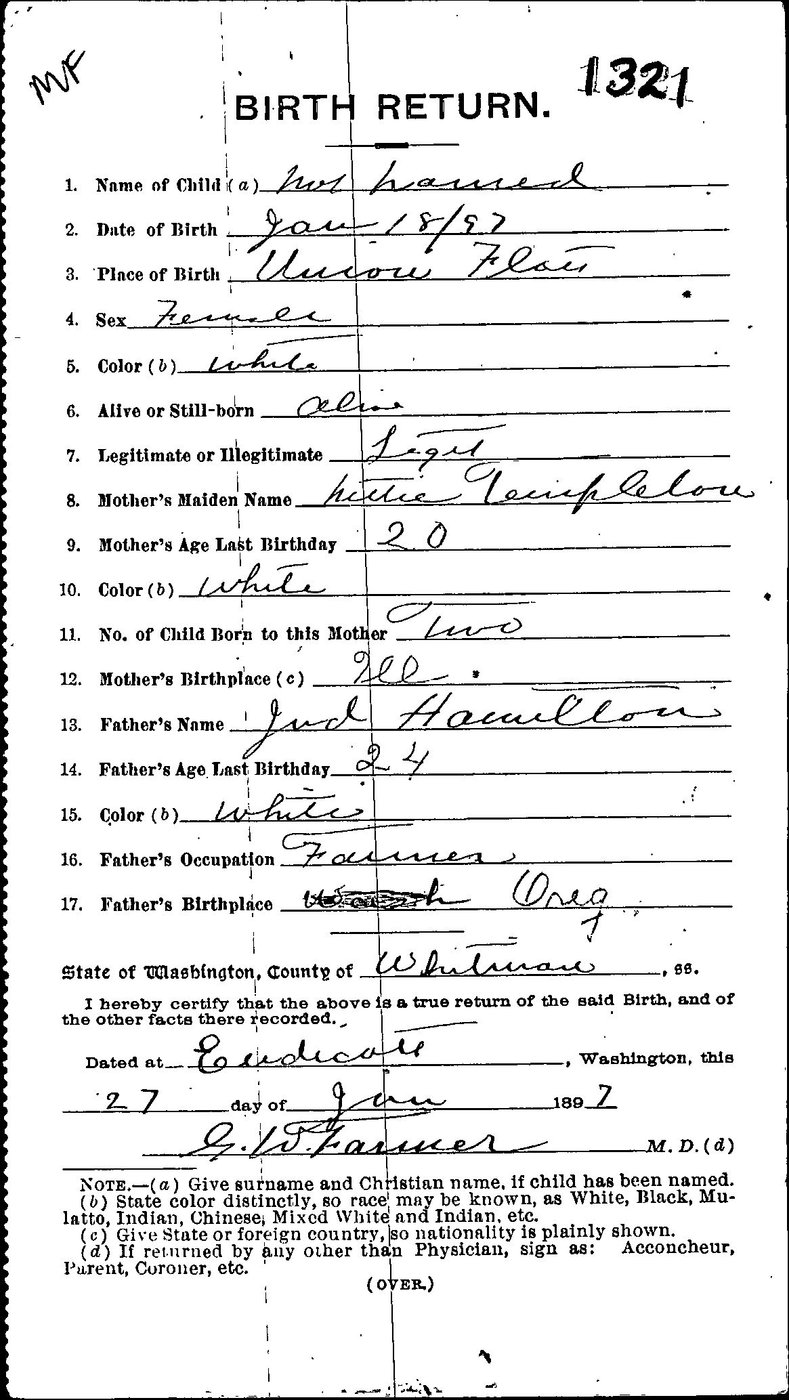 MF
1321
BIRTH RETURN.
1. Name of Child (a) Not named
2. Date of Birth Jan 18/97
3. Place of Birth Union Flatt
4. Sex Female
5. Color (b) White
6. Alive or Still-born Alive
7. Legitimate or Illegitimate Legit
8. Mother's Maiden Name Templeton
9. Mother's Age Last Birthday 20
10. Color (b) White
11. No. of Child Born to this Mother Two
12. Mother's Birthplace (c) Ill
13. Father's Name Jud Hamilton
14. Father's Age Last Birthday 24
15. Color (b) White
16. Father's Occupation Farmer
17. Father's Birthplace Oreg
State of Washington, County of Whitman, ss.
I hereby certify that the above is a true return of the said Birth, and of
the other facts there recorded.
Dated at Endicott, Washington, this
27 day of Jan 1897
G. W. Farmer M. D. (d)
NOTE.—(a) Give surname and Christian name, if child has been named.
(b) State color distinctly, so race may be known, as White, Black, Mu-
latto, Indian, Chinese, Mixed White and Indian, etc.
(c) Give State or foreign country, so nationality is plainly shown.
(d) If returned by any other than Physician, sign as: Acconcheur,
Parent, Coroner, etc.
(OVER.)